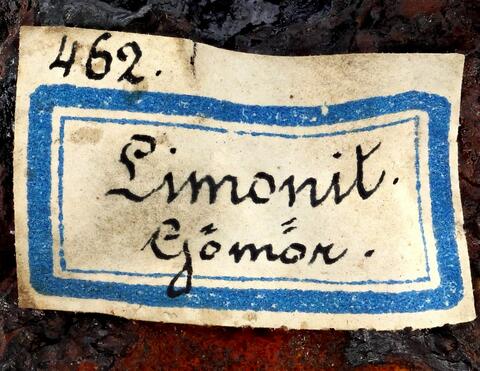 462.
Limonit.
Gömör.